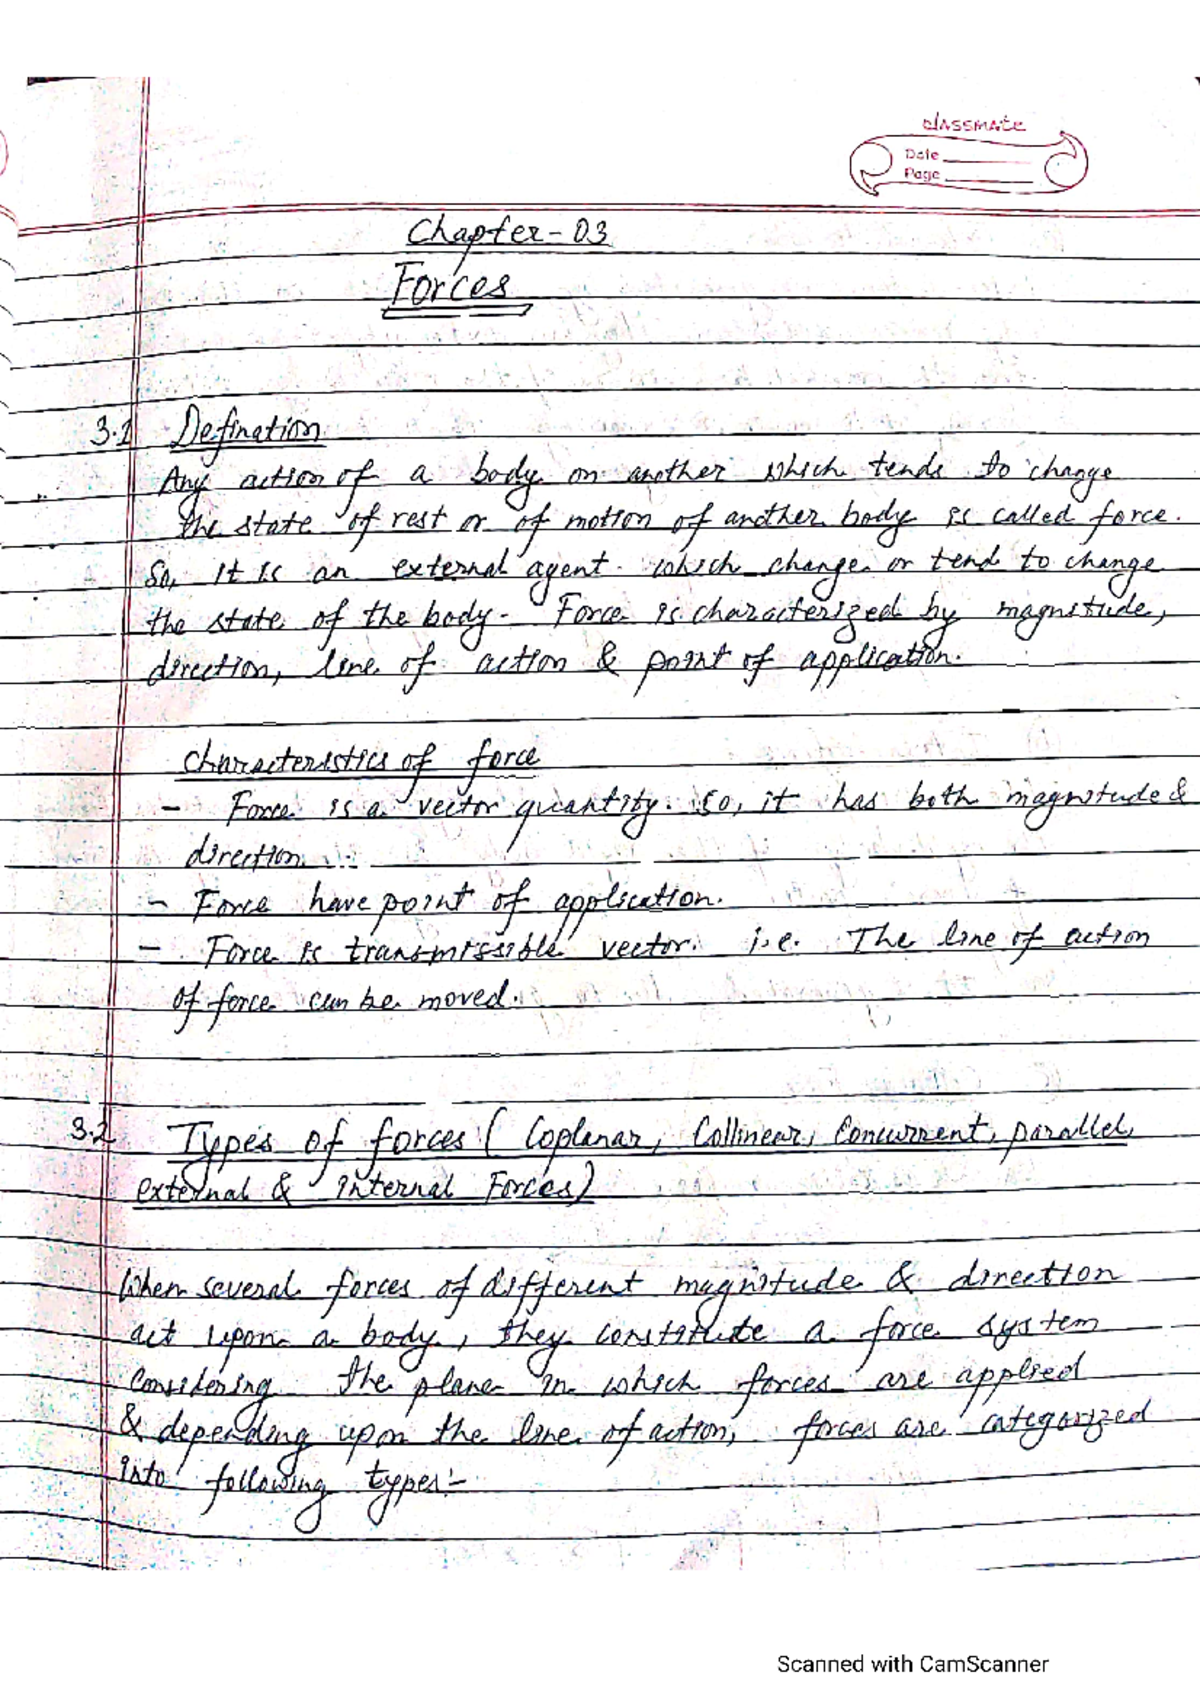 classmate
Date
Page
Chapter-03
Forces
3.1 Defination
Any action of a body on another which tends to change
the state of rest or of motion of another body is called force.
So, it is an external agent which change or tend to change
the state of the body. Force is characterized by magnitude,
direction, line of action & point of application.
Characteristics of force
- Force is a vector quantity. So, it has both magnitude &
direction.
- Force have point of application.
- Force is transmissible vector. i.e. The line of action
of force can be moved.
3.2 Types of forces (Coplanar, Collinear, Concurrent, parallel,
external & internal Forces)
When several forces of different magnitude & direction
act upon a body, they constitute a force system
Considering the plane in which forces are applied
& depending upon the line of action, forces are categorized
into following types:-
Scanned with CamScanner